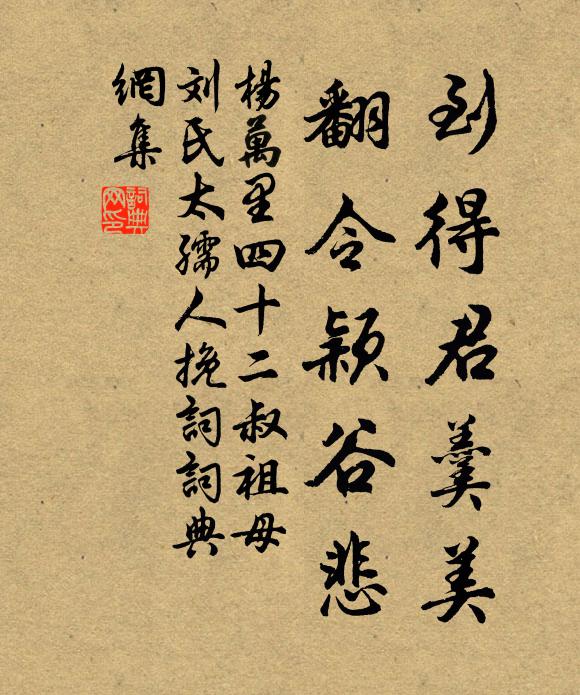 到得君羹美
翻令颍谷悲
楊萬里四十二叔祖母
刘氏太孺人挽詞詞典
網集
詞典
网印